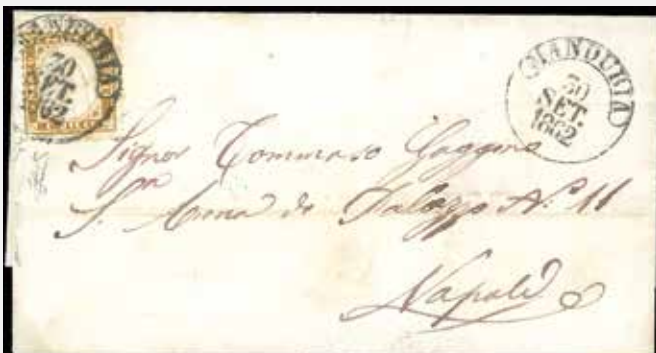 MANDURIA
30
SET.
62
MANDURIA
30
SET.
1862
Signor Tommaso Gaggero
S. Anna di Palazzo N.º 11
Napoli